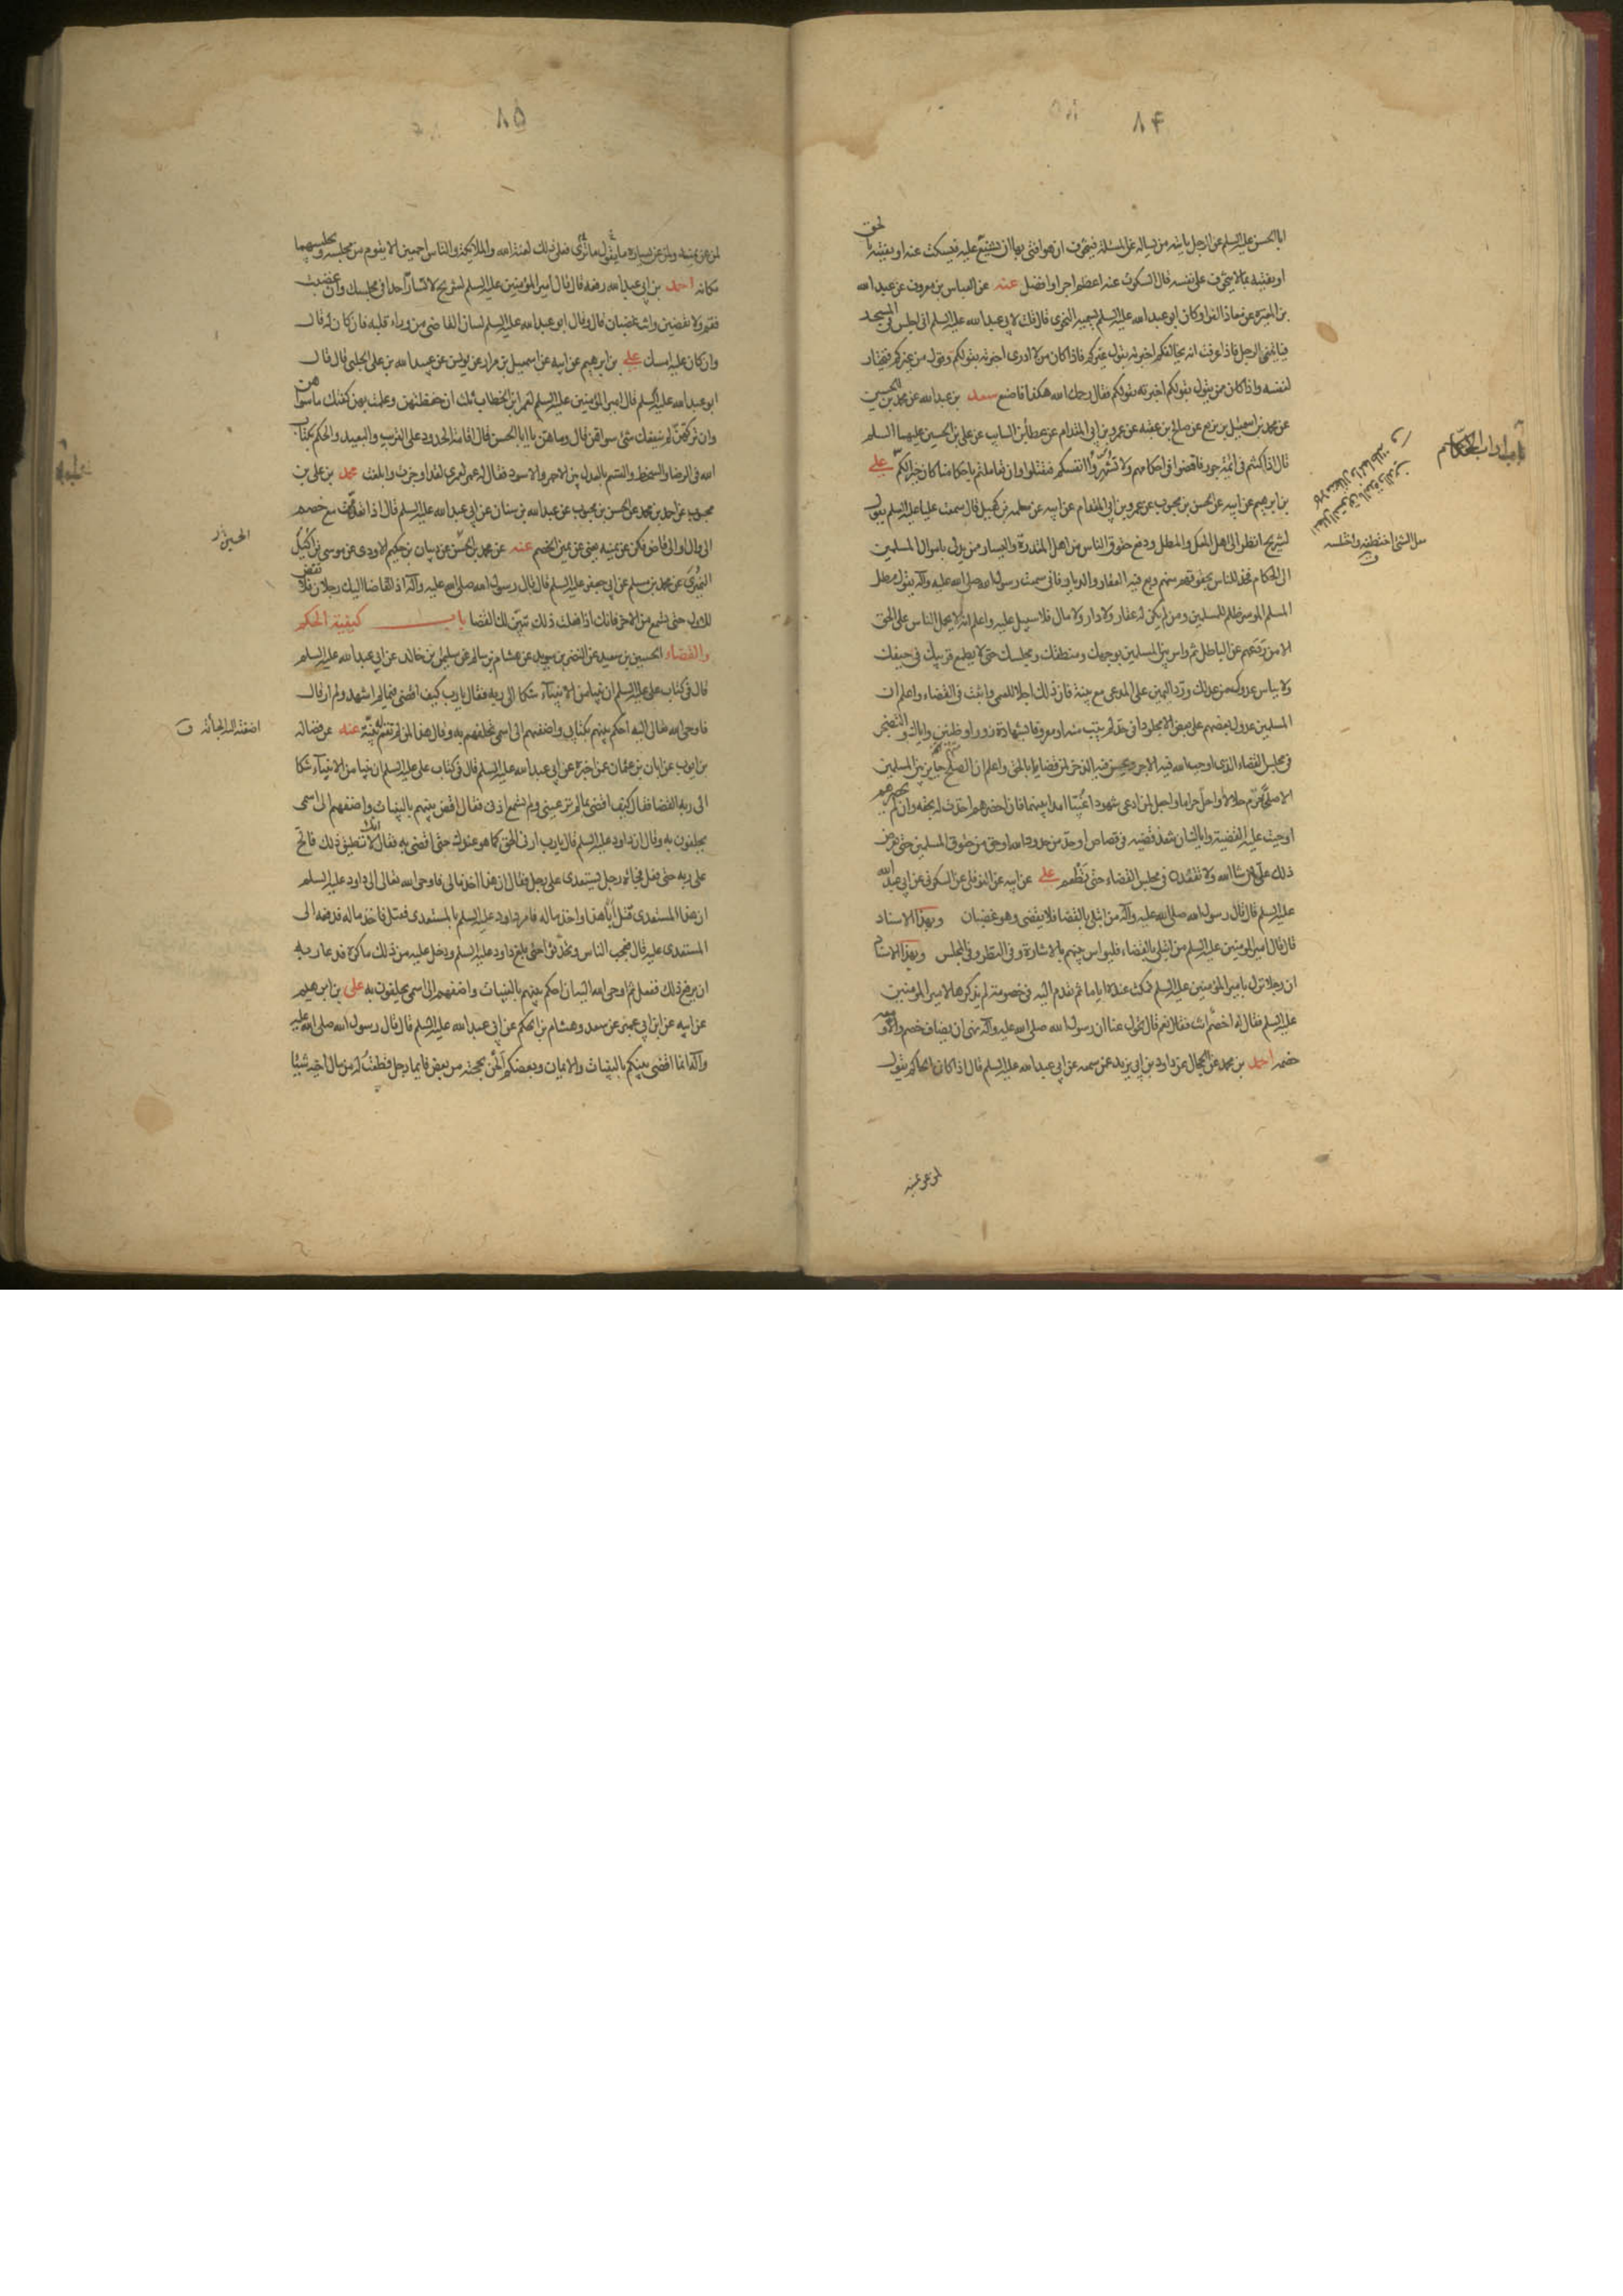 ٨٤
ابا الحسن عليه السلم عن الرجل ياتيه من يساله عن المسئلة فيتخوف ان هو افتى بها ان يشنع عليه فيسكت عنه او يفتيه بالحق
او يفتيه بما لا يتخوف على نفسه قال السكوت عنه اعظم اجرا وافضل عنه عن العباس بن معروف عن عبد الله
بن المغيرة عن معاذ الفرا وكان ابو عبد الله عليه السلم يسميه النحوى قال قلت لابى عبد الله عليه السلم انى اجلس فى المسجد
فياتينى الرجل فاذا عرفت انه يخالفكم اخبرته بقول غيركم فاذا كان من لا ادرى اخبرته بقولكم وقول من غيركم فيختار
لنفسه واذا كان ممن يقول بقولكم اخبرته بقولكم فقال رحمك الله هكذا فاصنع سعد بن عبد الله عن محمد بن الحسين
عن محمد بن اسمعيل بن بزيع عن صالح بن عقبه عن عمرو بن ابى المقدام عن عطا بن السايب عن على بن الحسين عليهما السلم
قال اذا كنتم فى ائمة جور فاقضوا فى احكامهم ولا تشهروا انفسكم فتقتلوا وان تعاملتم باحكامنا كان خيرا لكم على
بن ابرهيم عن ابيه عن الحسن بن محبوب عن عمرو بن ابى المقدام عن ابيه عن سلمه بن كهيل قال سمعت عليا عليه السلم يقول
لشريح انظر الى اهل المعك والمطل ودفع حقوق الناس من اهل المقدرة واليسار ممن يدلى باموال المسلمين
الى الحكام فخذ للناس بحقوقهم منهم وبع فيه العقار والديار فانى سمعت رسول الله صلى الله عليه وآله يقول مطل
المسلم الموسر ظلم للمسلمين ومن لم يكن له عقار ولا دار ولا مال فلا سبيل عليه واعلم انه لا يحمل الناس على الحق
الا من ردعهم عن الباطل ثم واس بين المسلمين بوجهك ومنطقك ومجلسك حتى لا يطمع قريبك فى حيفك
ولا يياس عدوك من عدلك ورد اليمين على المدعى مع بينة فان ذلك اجلا للعمى واثبت فى القضاء واعلم ان
المسلمين عدول بعضهم على بعض الا مجلودا فى حد لم يتب منه او معروفا بشهادة زور او ظنين واياك والتضجر
فى مجلس القضاء الذى اوجب الله فيه الاجر ويحسن فيه الذخر لمن قضى بالحق واعلم ان الصلح جايز بين المسلمين
الا صلح حرم حلالا او احل حراما واجعل لمن ادعى شهودا غيبا امدا بينهما فان احضرهم اخذت له بحقه وان لم يحضرهم
اوجبت عليه القضية واياك ان تنفذ قضيه فى قصاص او حد من حدود الله او حق من حقوق المسلمين حتى تعرض
ذلك على ان شا الله ولا تقعدن فى مجلس القضاء حتى تطعم على عن ابيه عن النوفلى عن السكونى عن ابى عبد الله
عليه السلم قال قال رسول الله صلى الله عليه وآله من ابتلى بالقضا فلا يقضى وهو غضبان وبهذا الاسناد
قال قال امير المومنين عليه السلم من ابتلى بالقضاء فليواس بينهم بالاشارة وفى النظر وفى المجلس وبهذا الاسناد
ان رجلا نزل بامير المومنين عليه السلم فمكث عنده اياما ثم تقدم اليه فى خصومة لم يذكرها لامير المومنين
عليه السلم فقال له اخصم انت فقال نعم قال تحول عنا ان رسول الله صلى الله عليه وآله نهى ان يضاف خصم الا ومعه
خصمه احمد بن محمد عن الحجال عن داود بن ابى يزيد عمن سمعه عن ابى عبد الله عليه السلم قال اذا كان الحاكم يقول
لمن عن يمينه
باب اداب الحكام
سل الشئ اختطفته واختلسه
٨٥
لمن عن يمينه ولمن عن يساره ما يقول ما ترى فعلى ذلك لعنة الله والملائكة والناس اجمعين الا يقوم من مجلسه ويجلسهما
مكانه احمد بن ابى عبد الله رفعه قال قال امير المؤمنين عليه السلم لشريح لا تسار احدا فى مجلسك وان غضبت
فقم ولا تقضين وانت غضبان قال وقال ابو عبد الله عليه السلم لسان القاضى من وراء قلبه فان كان له قال
وان كان عليه امسك على بن ابرهيم عن ابيه عن اسمعيل بن مرار عن يونس عن عبيد الله بن على الحلبى قال قال
ابو عبد الله عليه السلم قال امير المومنين عليه السلم لعمر ابن الخطاب ثلث ان حفظتهن وعملت بهن كفتك ما سواهن
وان تركتهن لم ينفعك شئ سواهن قال وما هن يا ابا الحسن قال اقامة الحدود على القريب والبعيد والحكم بكتاب
الله فى الرضا والسخط والقسم بالعدل بين الاحمر والاسود فقال له عمر لعمرى لقد اوجزت وابلغت محمد بن على بن
محبوب عن احمد بن محمد عن الحسن بن محبوب عن عبد الله بن سنان عن ابى عبد الله عليه السلم قال اذا تقدمت مع خصم
الى وال او الى قاض فكن عن يمينه يعنى عن يمين الخصم عنه عن محمد بن الحسن عن ذبيان بن حكيم الاودى عن موسى بن اكيل
النميرى عن محمد بن مسلم عن ابى جعفر عليه السلم قال قال رسول الله صلى الله عليه وآله اذا تقاضا اليك رجلان فلا تقض
للاول حتى تسمع من الاخر فانك اذا فعلت ذلك تبين لك القضا باب كيفية الحكم
والقضاء الحسين بن سعيد عن النضر بن سويد عن هشام بن سالم عن سليمن بن خالد عن ابى عبد الله عليه السلم
قال فى كتاب على عليه السلم ان نبيا من الانبيآء شكا الى ربه فقال يا رب كيف اقضى فيما لم اشهد ولم ار قال
فاوحى الله تعالى اليه احكم بينهم بكتابى واضفهم الى اسمى تحلفهم به وقال هذا لمن لم تقم له بينة عنه عن فضاله
بن ايوب عن ابان بن عثمان عمن اخبره عن ابى عبد الله عليه السلم قال فى كتاب على عليه السلم ان نبيا من الانبيآء شكا
الى ربه القضا فقال كيف اقضى بما لم تر عينى ولم تسمع اذنى فقال اقض بينهم بالبينات واضفهم الى اسمى
يحلفون به وقال ان داود عليه السلم قال يا رب ارنى الحق كما هو عندك حتى اقضى به فقال انك لا تطيق ذلك فالح
على ربه حتى فعل فجائه رجل يستعدى على رجل فقال ان هذا اخذ مالى فاوحى الله تعالى الى داود عليه السلم
ان هذا المستعدى قتل ابا هذا واخذ ماله فامر داود عليه السلم بالمستعدى فقتل فاخذ ماله فدفعه الى
المستعدى عليه قال فعجب الناس وتحدثوا حتى بلغ داود عليه السلم ودخل عليه من ذلك ما كره فدعا ربه
ان يرفع ذلك ففعل ثم اوحى الله اليه ان احكم بينهم بالبينات واضفهم الى اسمى يحلفون به على بن ابرهيم
عن ابيه عن ابن ابى عمير عن سعد وهشام بن الحكم عن ابى عبد الله عليه السلم قال قال رسول الله صلى الله عليه
وآله انما اقضى بينكم بالبينات والايمان وبعضكم الحن بحجته من بعض فايما رجل قطعت له من مال اخيه شيئا
الحسين خ ر
اضفته اليه الجأته ق